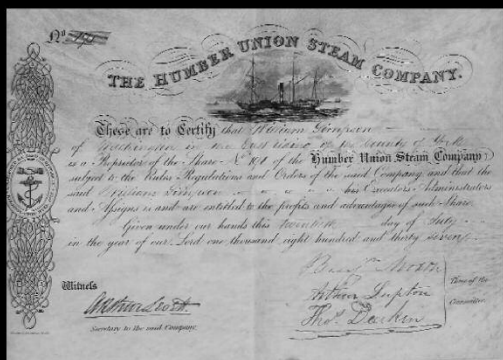 No 191
THE HUMBER UNION STEAM COMPANY.
These are to Certify that William Simpson
of in the East riding of the County of York
is a Proprietor of the Share No 191 of the Humber Union Steam Company
subject to the Rules Regulations and Orders of the said Company and that the
said William Simpson his Executors Administrators
and Assigns is and are entitled to the profits and advantages of such Share.
Given under our hands this day of July
in the year of our Lord one thousand eight hundred and thirty seven
Witness
Secretary to the said Company.
Arthur Lupton
Thos. Darkin
Three of the
Committee